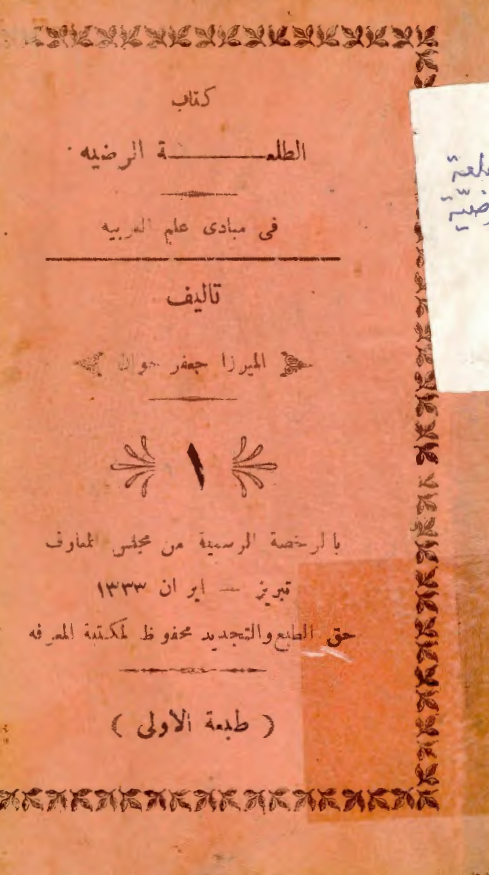 كتاب
الطلعـــــــــة الرضيه
فى مبادى علم العربيه
تاليف
الميرزا جعفر
١
بالرخصة الرسمية من مجلس المعارف
تبريز — ايران ١٣٣٣
حق الطبع والتجديد محفوظ لمكتبة المعرفه
( طبعة الاولى )